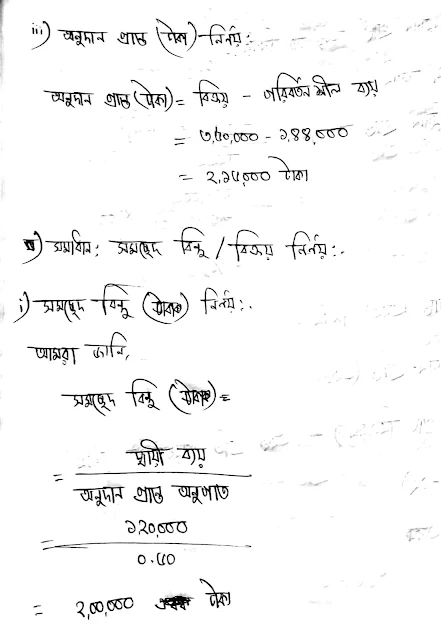 iii) অনুদান প্রান্ত (টাকা) নির্নয়:
অনুদান প্রান্ত (টাকা) = বিক্রয় - পরিবর্তনশীল ব্যয়
= ৩,৬০,০০০ - ১,৪৪,০০০
= ২,১৬,০০০ টাকা
সমাধান: সমচ্ছেদ বিন্দু / বিক্রয় নির্নয়:.
i) সমচ্ছেদ বিন্দু (টাকায়) নির্নয়:.
আমরা জানি,
সমচ্ছেদ বিন্দু (টাকায়) =
= স্থায়ী ব্যয়
অনুদান প্রান্ত অনুপাত
= ১,২০,০০০
০.৬০
= ২,০০,০০০ টাকা